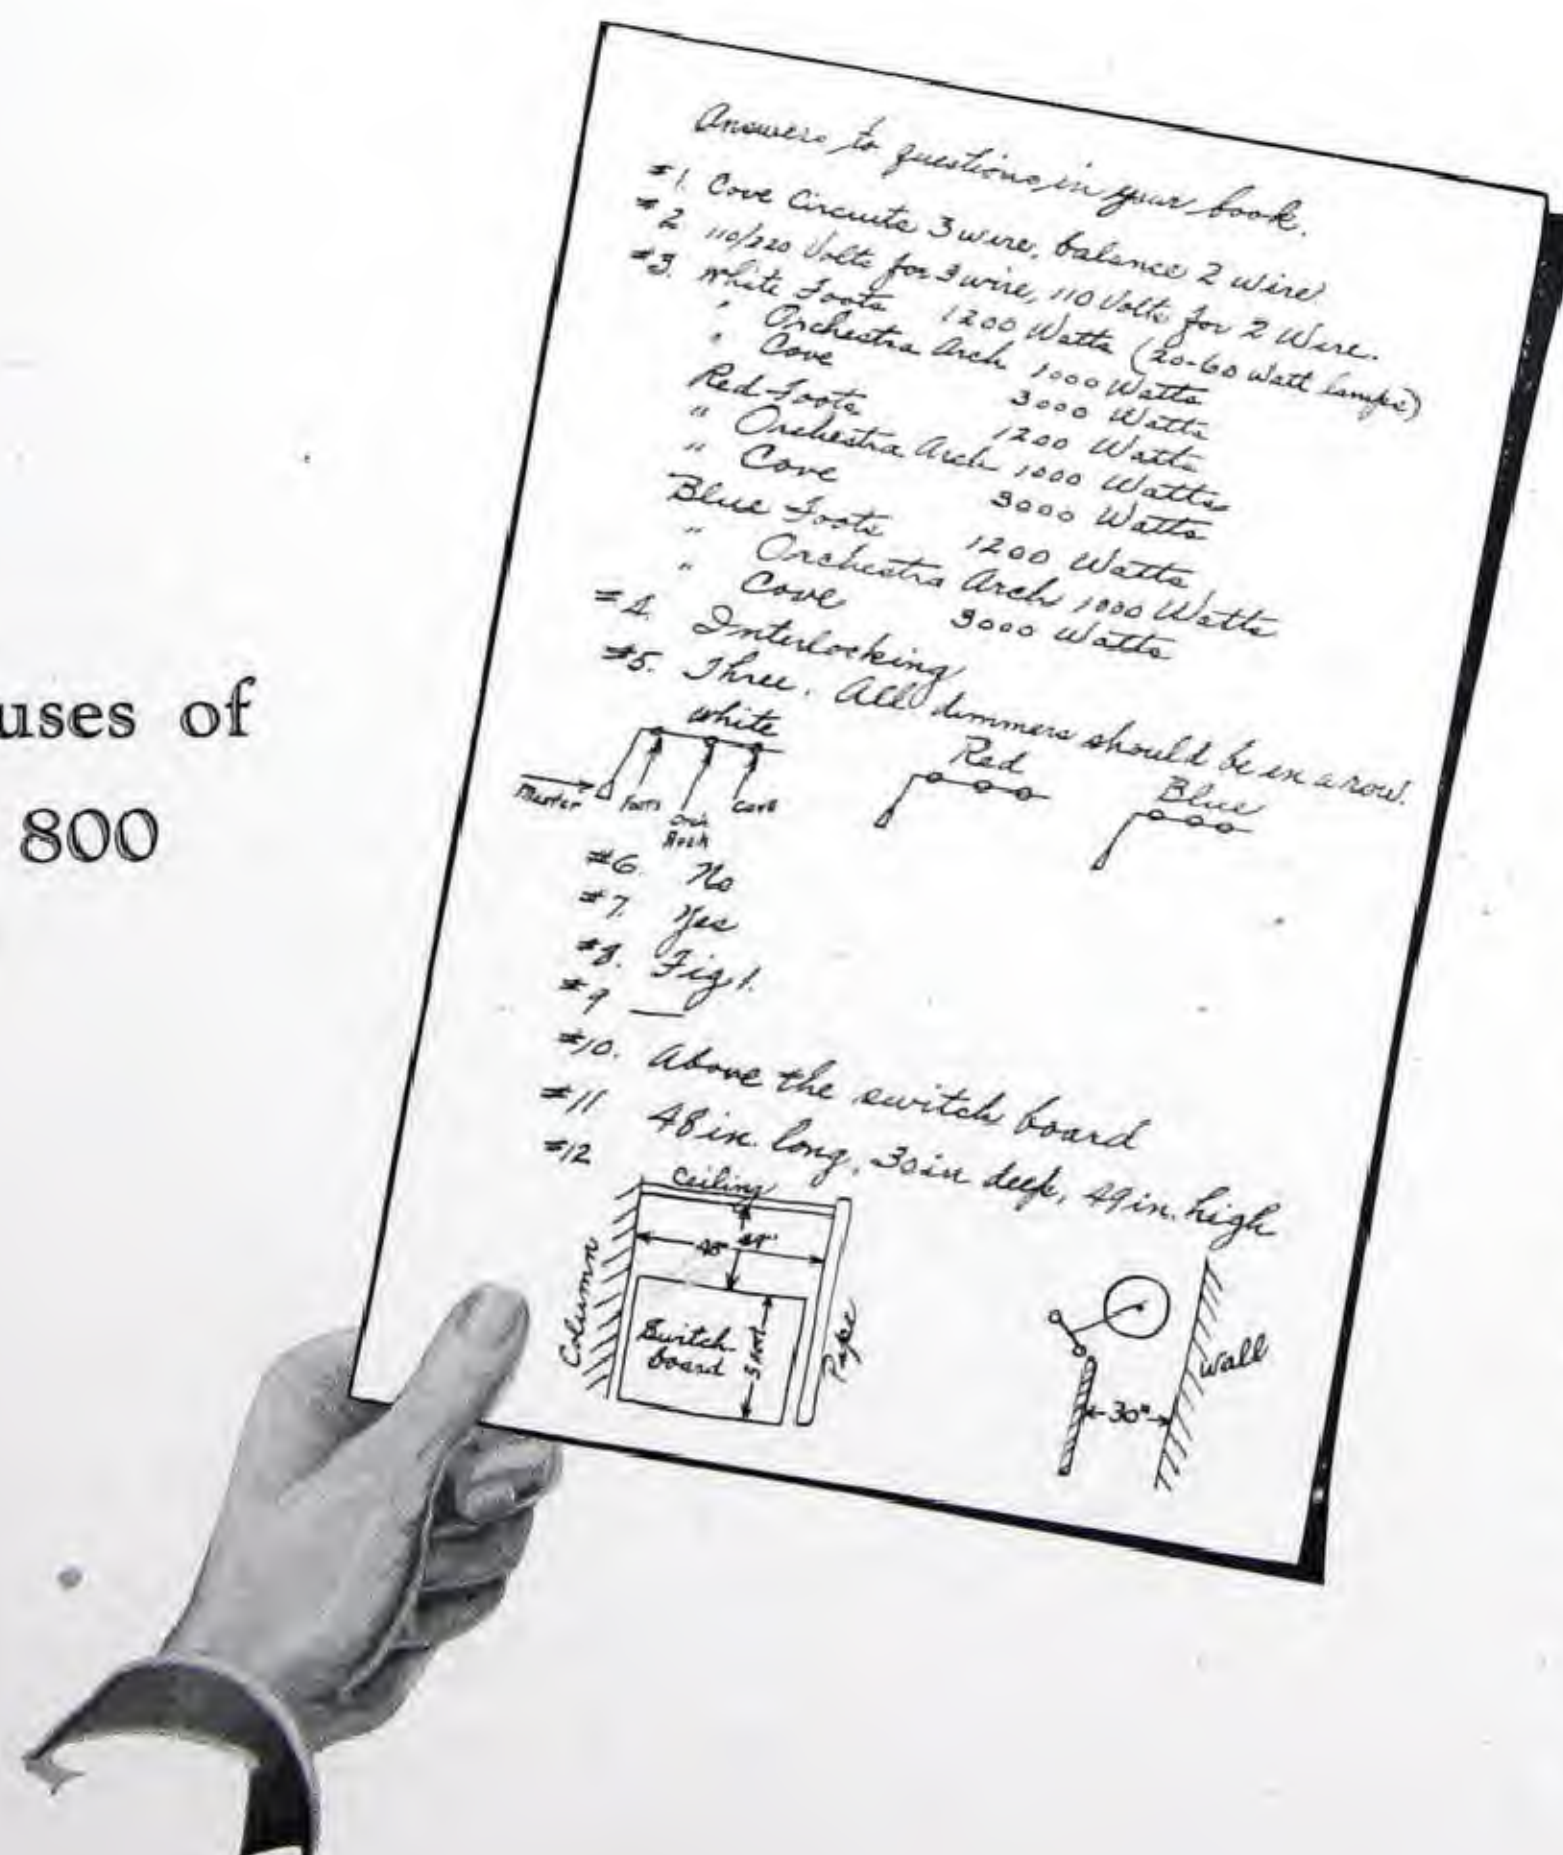 Answers to questions in your book.
#1. Cove Circuits 3 wire, balance 2 wire.
#2 110/220 Volts for 3 wire, 110 Volts for 2 Wire.
#3. White Foots 1200 Watts (20-60 watt lamps)
" Orchestra Arch 1000 Watts
" Cove 3000 Watts
Red Foots 1200 Watts
" Orchestra Arch 1000 Watts
" Cove 3000 Watts
Blue Foots 1200 Watts
" Orchestra Arch 1000 Watts
" Cove 3000 Watts
#4. Interlocking
#5. Three. All dimmers should be in a row.
White
Red
Blue
Master
Foots
Orch
Arch
Cove
uses of
800
#6. No
#7. Yes
#8. Fig 1.
#9 —
#10. Above the switch board
#11 48 in. long, 30 in deep, 49 in. high
#12
Ceiling
48" 49"
Column
Switch
board
Pipe
30"
Wall